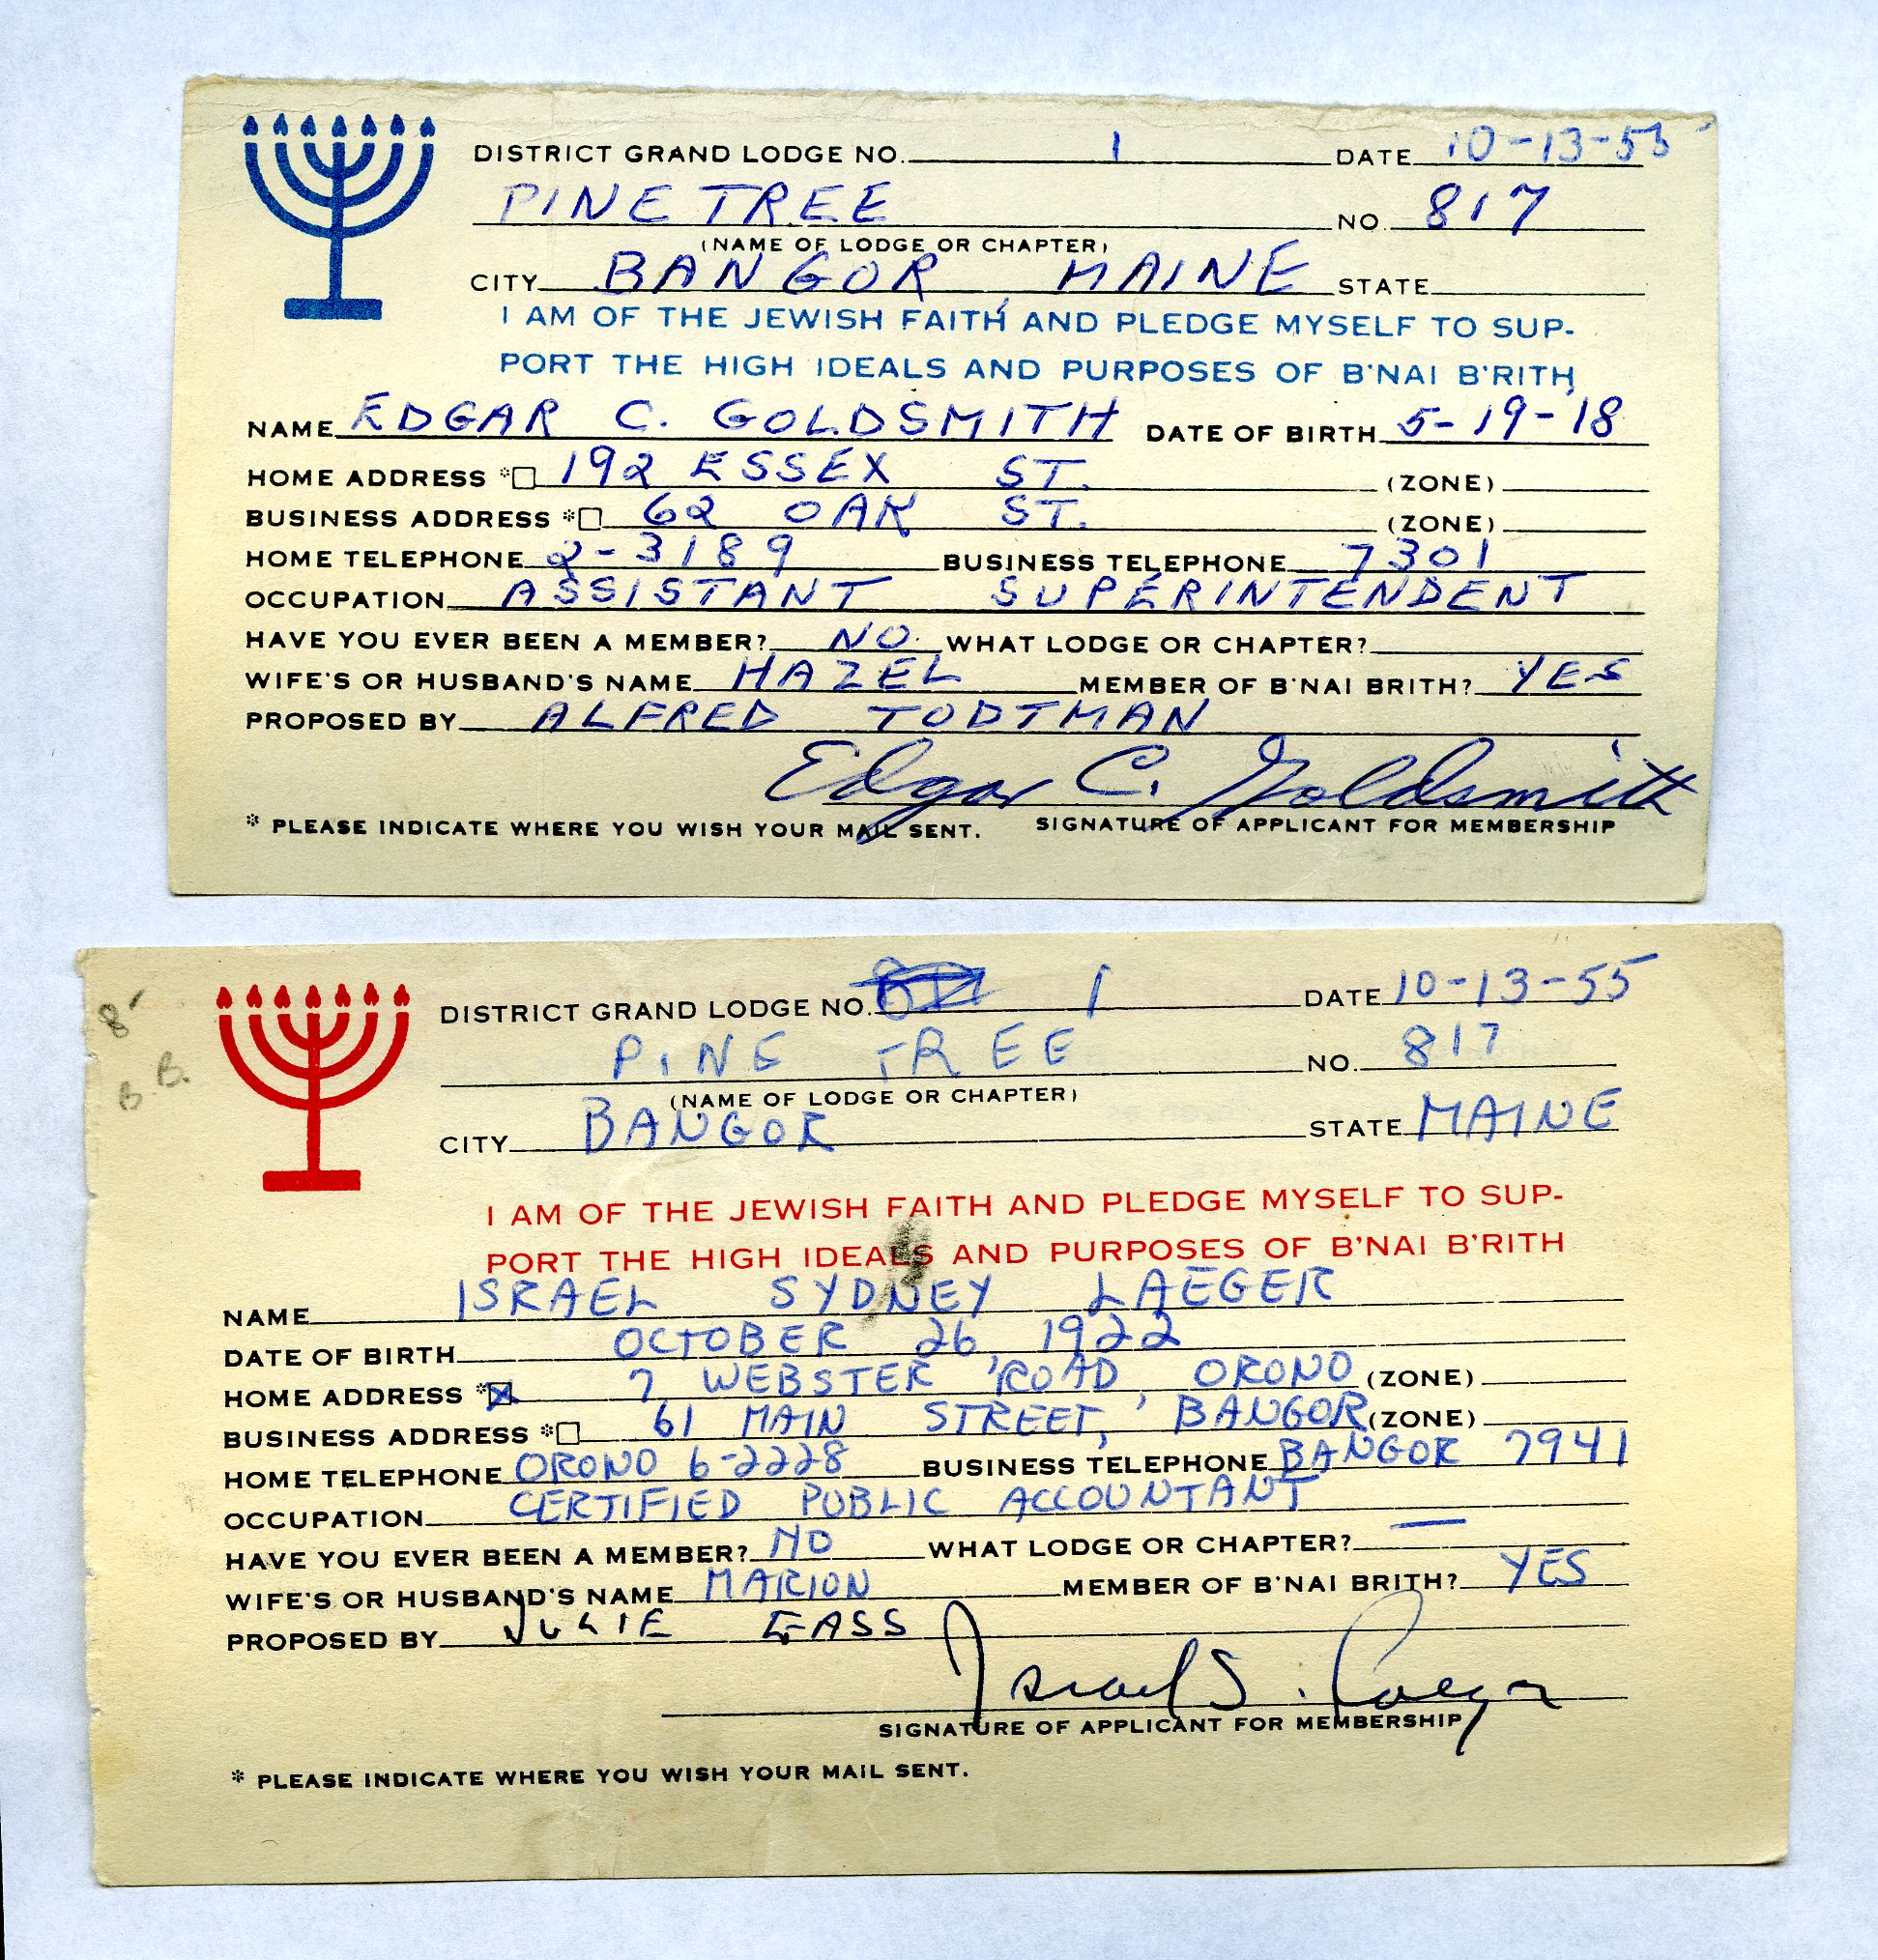 DISTRICT GRAND LODGE NO. 1 DATE 10-13-55
PINE TREE NO. 817
(NAME OF LODGE OR CHAPTER)
CITY BANGOR, MAINE STATE
I AM OF THE JEWISH FAITH AND PLEDGE MYSELF TO SUP-
PORT THE HIGH IDEALS AND PURPOSES OF B'NAI B'RITH
NAME EDGAR C. GOLDSMITH DATE OF BIRTH 5-19-18
HOME ADDRESS * 192 ESSEX ST. (ZONE)
BUSINESS ADDRESS * 62 OAK ST. (ZONE)
HOME TELEPHONE 2-3189 BUSINESS TELEPHONE 7301
OCCUPATION ASSISTANT SUPERINTENDENT
HAVE YOU EVER BEEN A MEMBER? NO. WHAT LODGE OR CHAPTER?
WIFE'S OR HUSBAND'S NAME HAZEL MEMBER OF B'NAI BRITH? YES
PROPOSED BY ALFRED TODTMAN
Edgar C. Goldsmith
* PLEASE INDICATE WHERE YOU WISH YOUR MAIL SENT. SIGNATURE OF APPLICANT FOR MEMBERSHIP
DISTRICT GRAND LODGE NO. 1 DATE 10-13-55
PINE TREE NO. 817
(NAME OF LODGE OR CHAPTER)
B. B.
CITY BANGOR STATE MAINE
I AM OF THE JEWISH FAITH AND PLEDGE MYSELF TO SUP-
PORT THE HIGH IDEALS AND PURPOSES OF B'NAI B'RITH
NAME ISRAEL SYDNEY LAEGER
DATE OF BIRTH OCTOBER 26, 1922
HOME ADDRESS * 7 WEBSTER ROAD, ORONO (ZONE)
BUSINESS ADDRESS * 61 MAIN STREET, BANGOR (ZONE)
HOME TELEPHONE ORONO 6-2228 BUSINESS TELEPHONE BANGOR 7941
OCCUPATION CERTIFIED PUBLIC ACCOUNTANT
HAVE YOU EVER BEEN A MEMBER? NO WHAT LODGE OR CHAPTER? —
WIFE'S OR HUSBAND'S NAME MARION MEMBER OF B'NAI BRITH? YES
PROPOSED BY JULIE
Israel S. Laeger
SIGNATURE OF APPLICANT FOR MEMBERSHIP
* PLEASE INDICATE WHERE YOU WISH YOUR MAIL SENT.